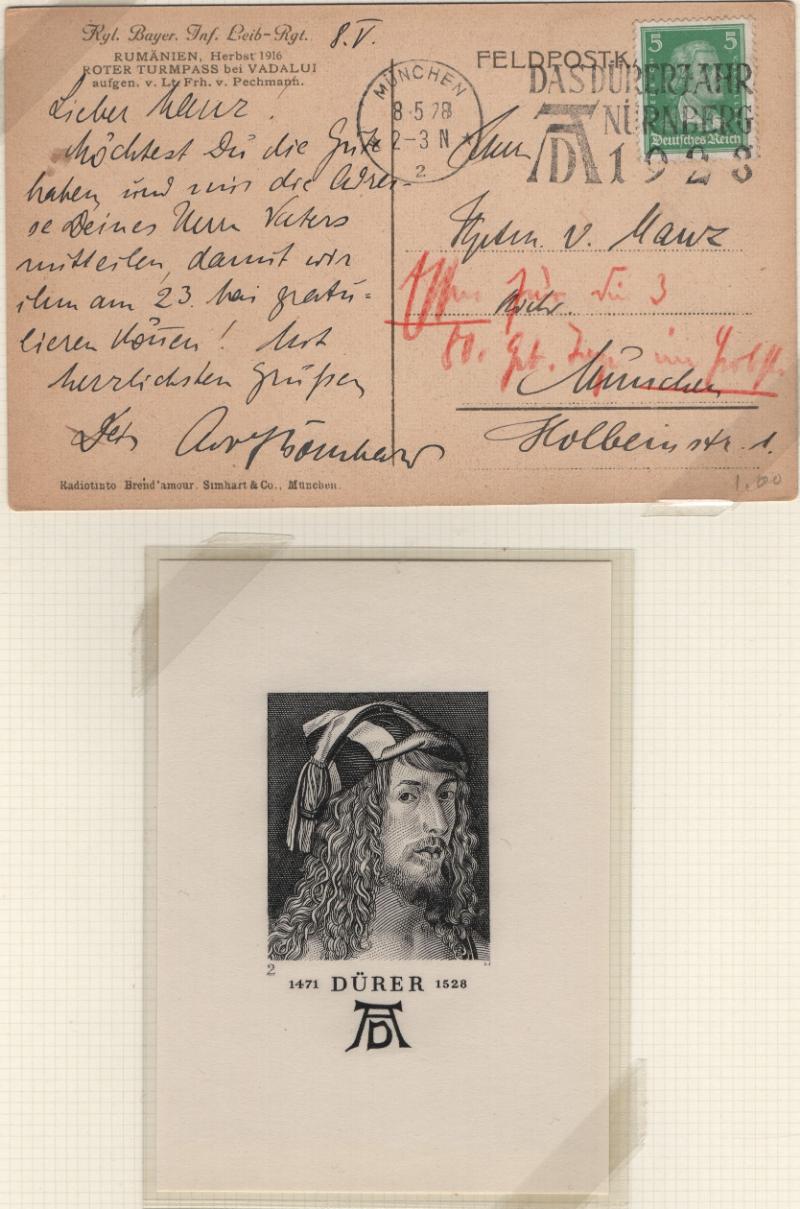 Kgl. Bayer. Inf. Leib-Rgt.
RUMÄNIEN, Herbst 1916
ROTER TURMPASS bei VADALUI
aufgen. v. Lt. Frh. v. Pechmann.
8. V.
Lieber Manz!
Möchtest Du die Güte
haben, und mir die Adres-
se Deines Herrn Vaters
mitteilen, damit wir
ihm am 23. Mai gratu-
lieren können! Mit
herzlichsten Grüßen
Dein
Radiotinto Brend'amour. Simhart & Co., München.
FELDPOSTK
MÜNCHEN
8·5 28
2-3 N
2
DAS DÜRERJAHR
NÜRNBERG
AD 1928
5 5
Deutsches Reich
Herrn
Hptm. v. Manz
für die 3
München
Holbeinstr. 1.
1.60
2
1471 DÜRER 1528
AD